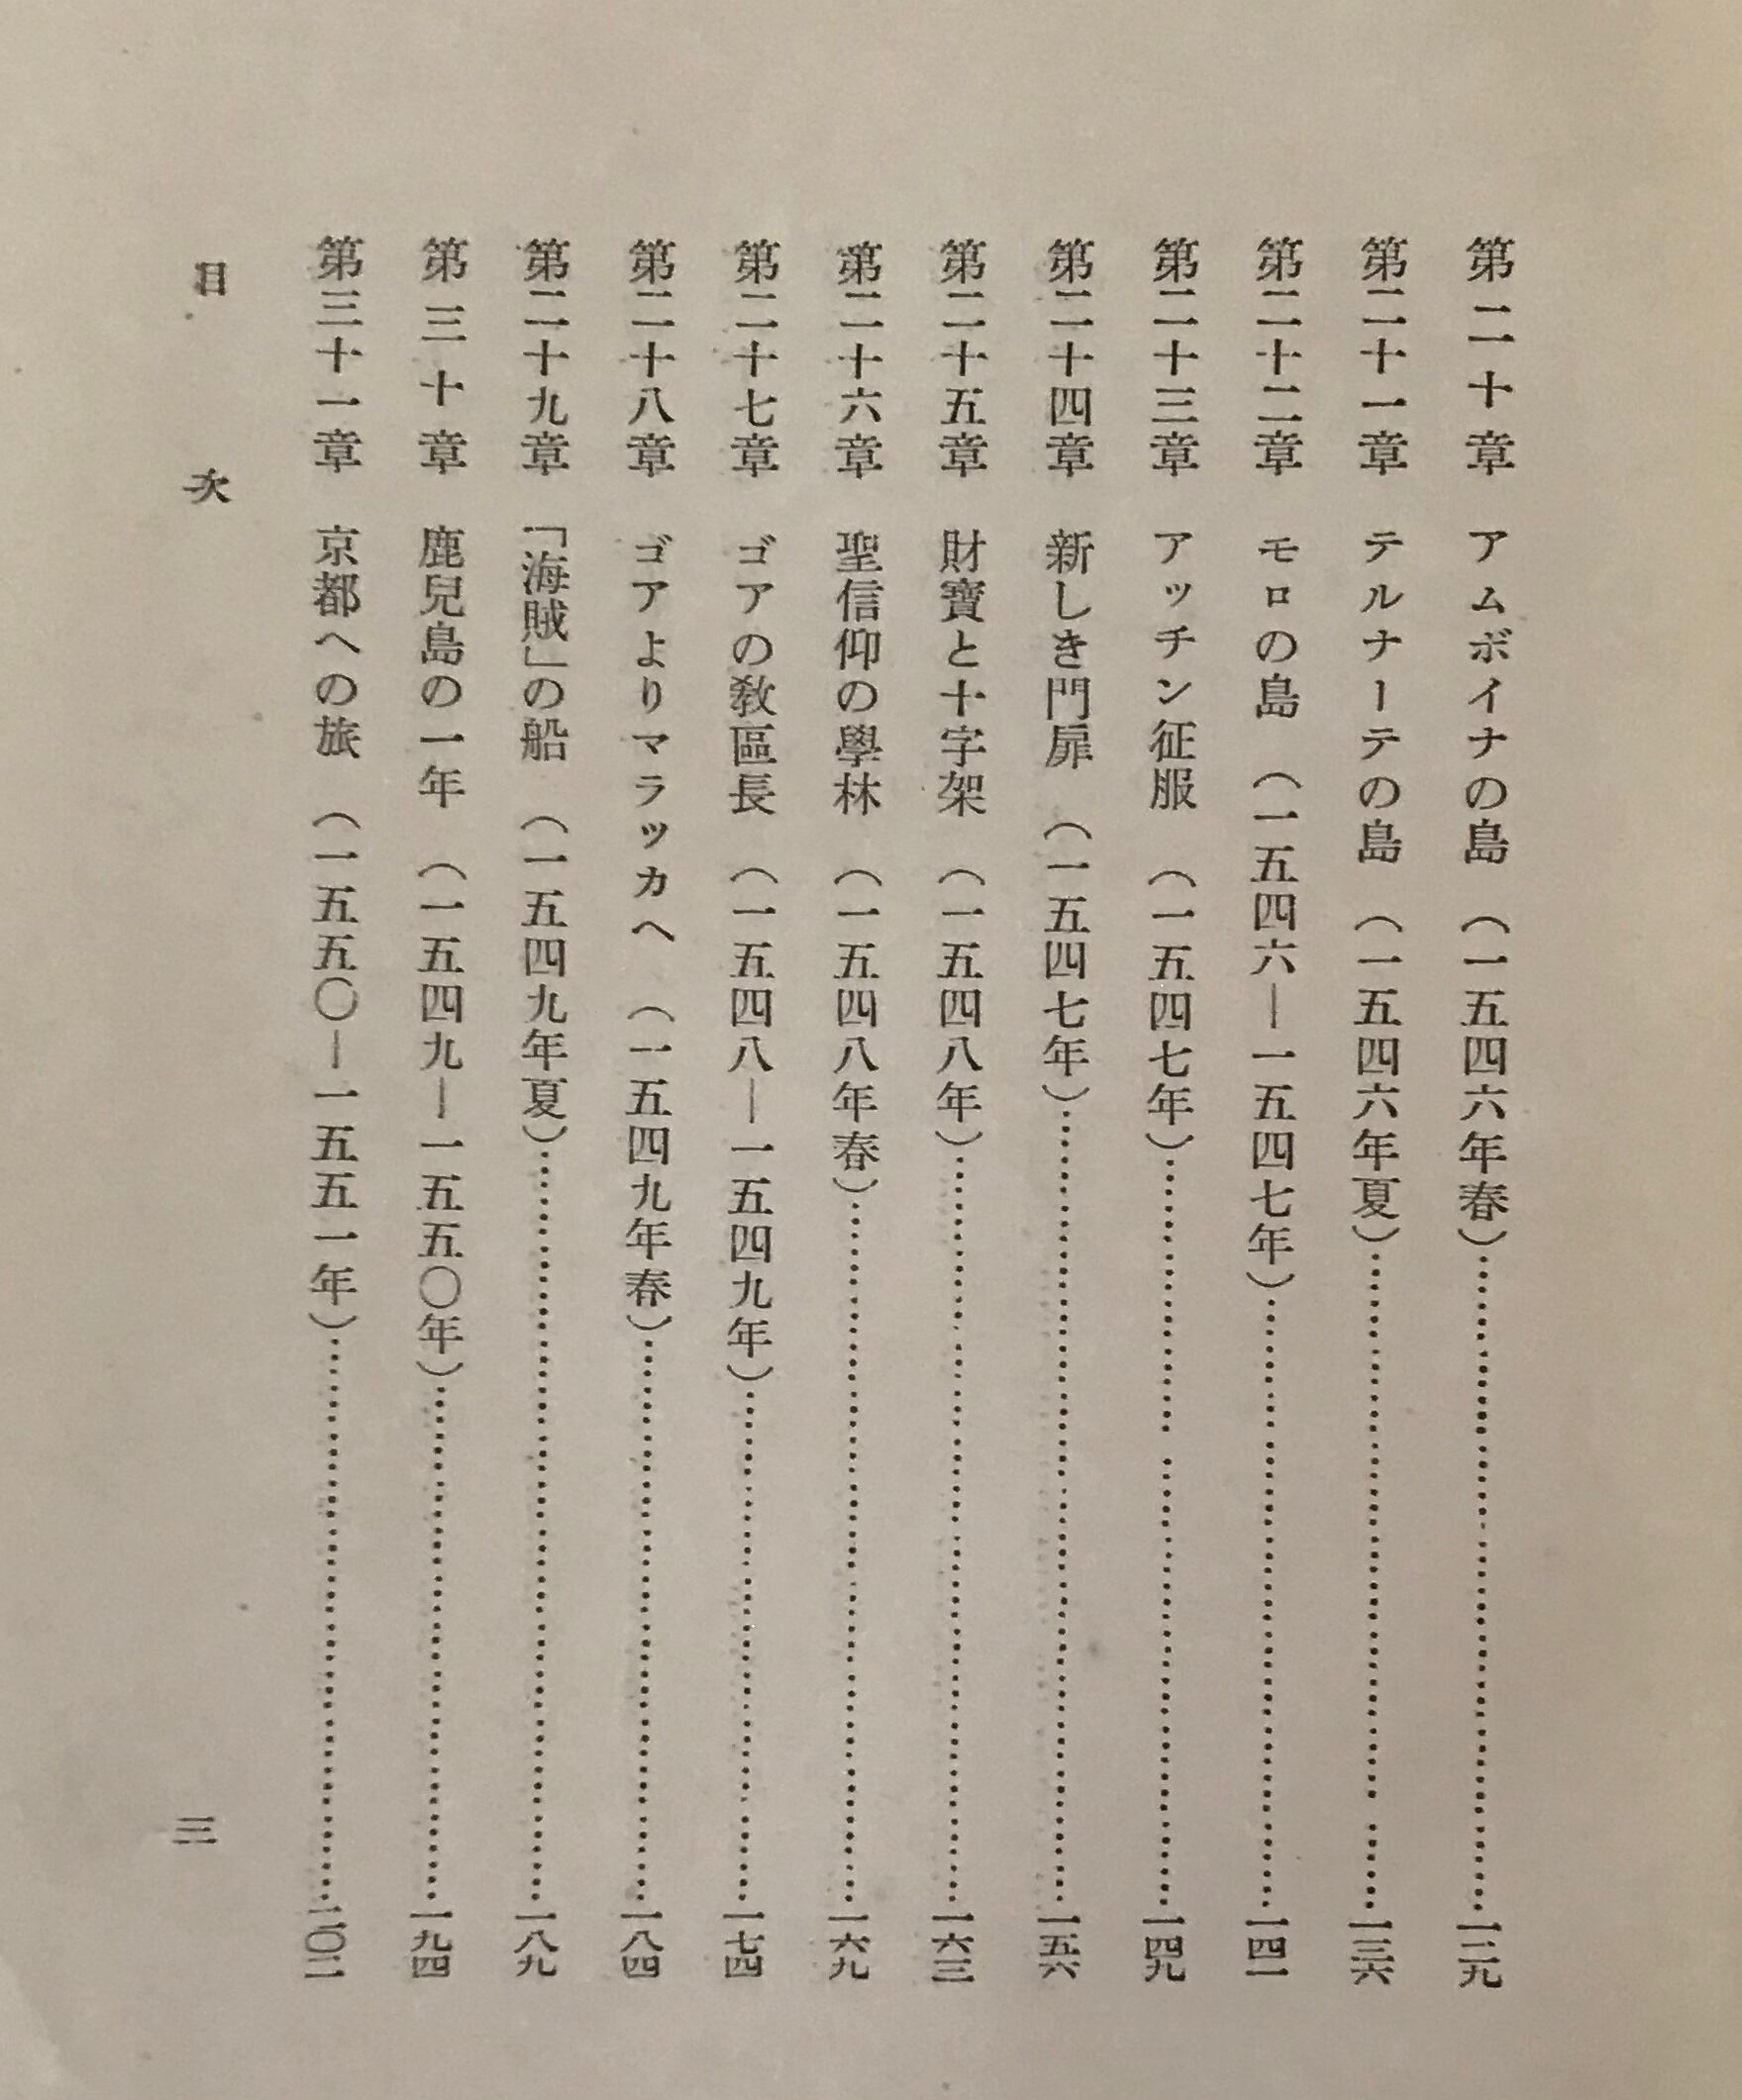 第二十章 アムボイナの島 (一五四六年春)……一二九
第二十一章 テルナーテの島 (一五四六年夏)……一三六
第二十二章 モロの島 (一五四六—一五四七年)……一四一
第二十三章 アッチン征服 (一五四七年)……一四九
第二十四章 新しき門扉 (一五四七年)……一五六
第二十五章 財寶と十字架 (一五四八年)……一六三
第二十六章 聖信仰の學林 (一五四八年春)……一六九
第二十七章 ゴアの敎區長 (一五四八—一五四九年)……一七四
第二十八章 ゴアよりマラッカへ (一五四九年春)……一八四
第二十九章 「海賊」の船 (一五四九年夏)……一八九
第三十章 鹿兒島の一年 (一五四九—一五五〇年)……一九四
第三十一章 京都への旅 (一五五〇—一五五一年)……二〇二
目次 三